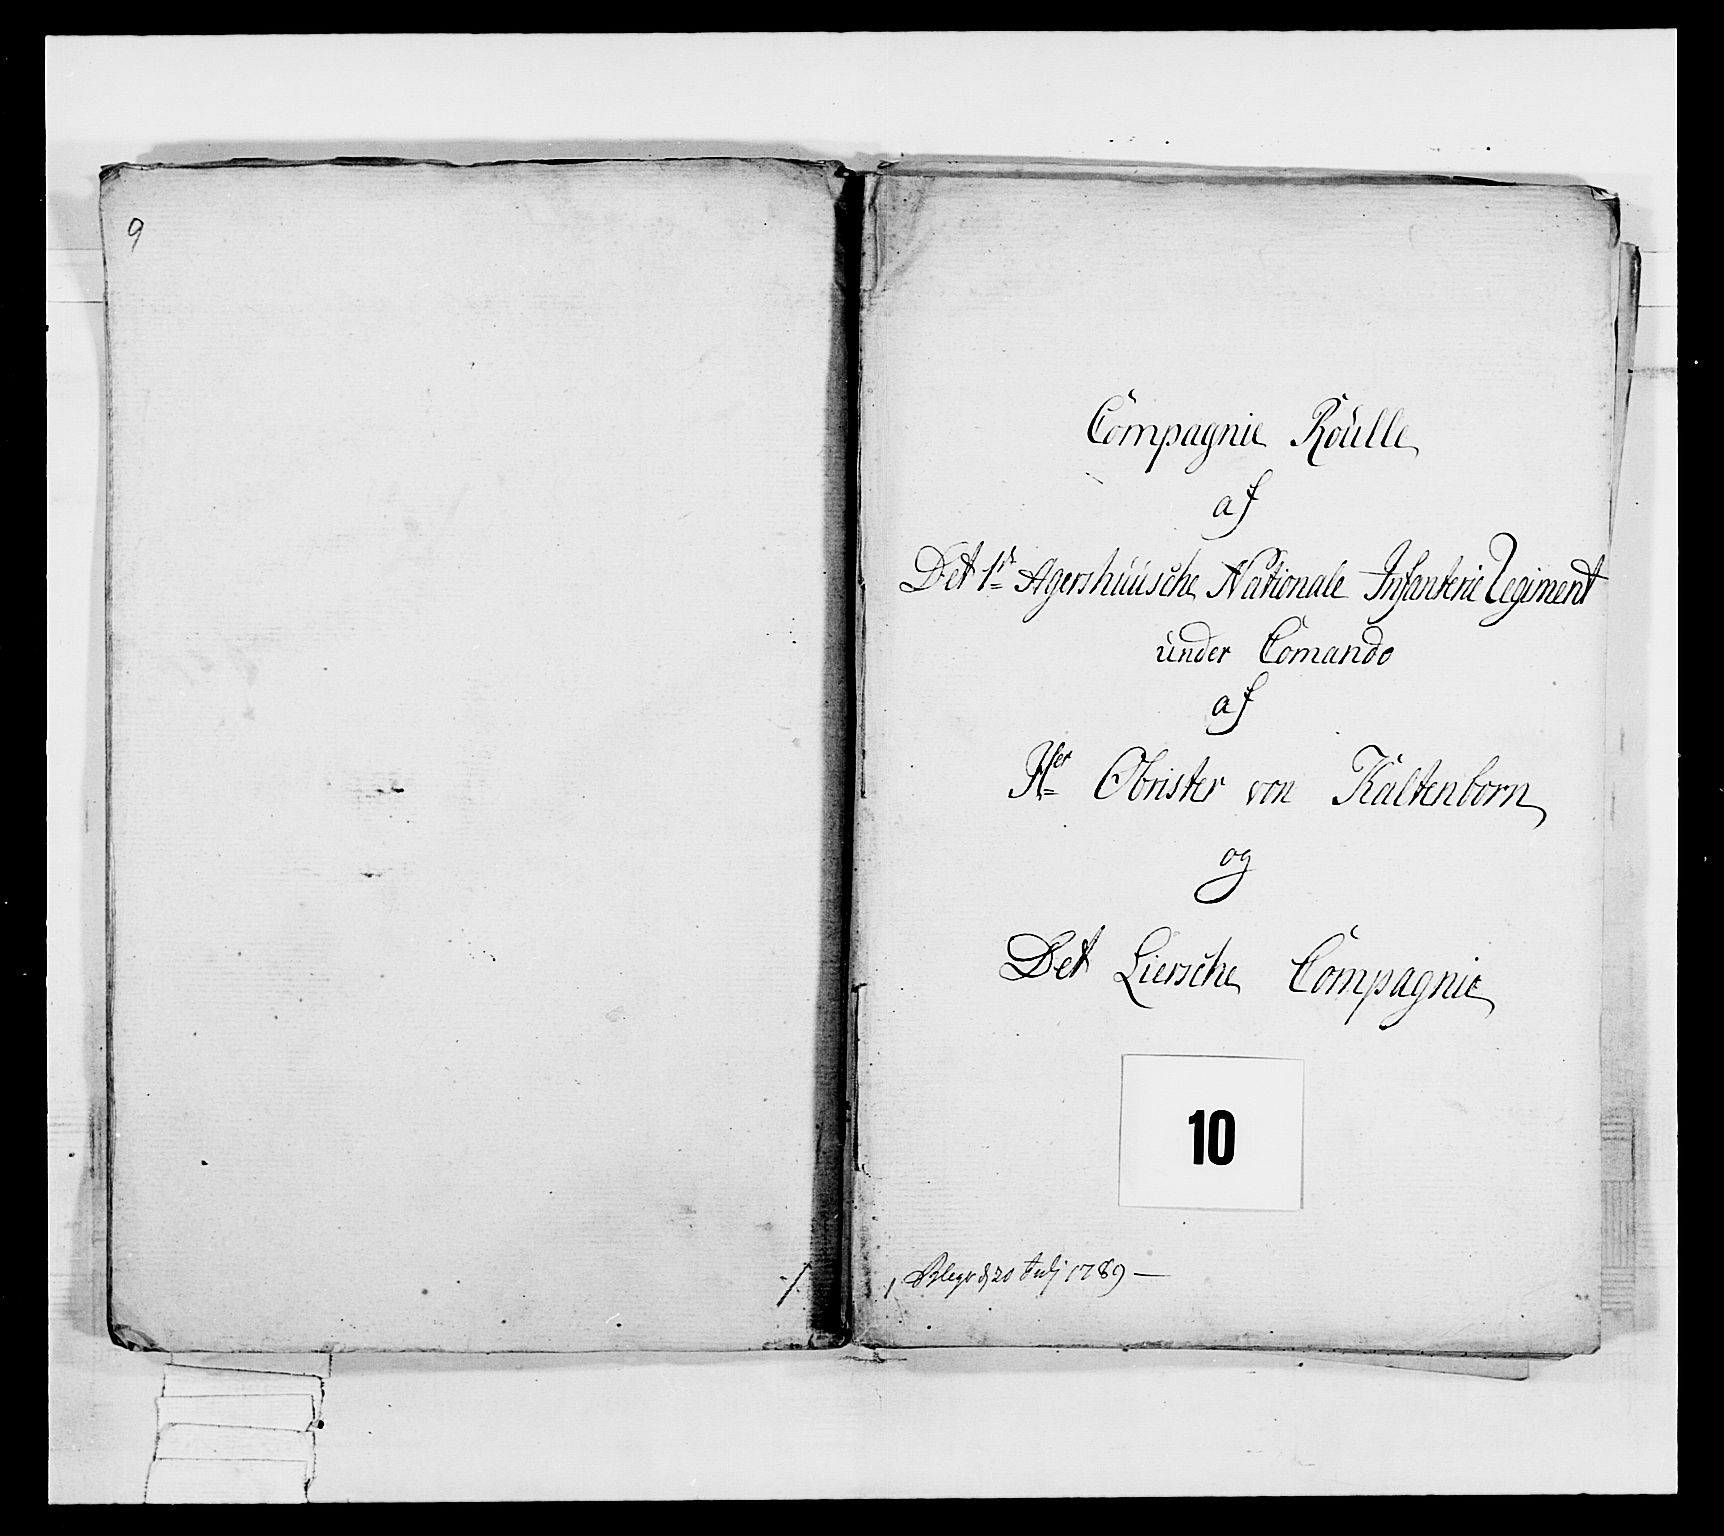 9
Compagnie Roulle
af
Det 1st Agershuusche Nationale Infanterie Regiment
under Comando
af
Her Obrister von Kaltenborn
og
Det Liersche Compagnie
10
20 Julj 1789 —